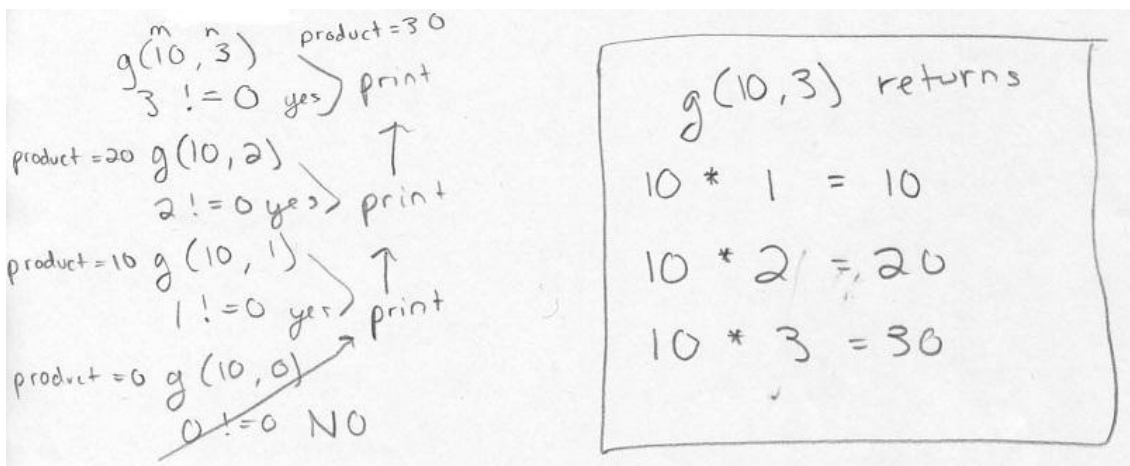 m n
g(10, 3) product=30
3 != 0 yes print
product=20 g(10,2)
2 != 0 yes print
product=10 g(10, 1)
1 != 0 yes print
product=0 g(10, 0)
0 != 0 NO
g(10,3) returns
10 * 1 = 10
10 * 2 = 20
10 * 3 = 30